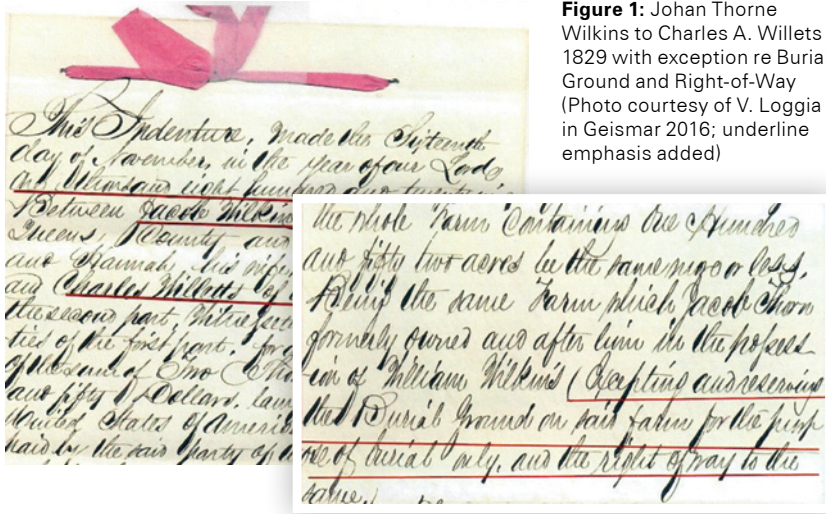 Figure 1: Johan Thorne
Wilkins to Charles A. Willets
1829 with exception re Buria
Ground and Right-of-Way
(Photo courtesy of V. Loggia
in Geismar 2016; underline
emphasis added)
This Indenture, Made this Sixteenth
day of November, in the year of our Lord
one thousand eight hundred and
Between Jacob Wilkin
Queens, County and
and Hannah, his wife
and Charles Willetts of
the second part, Witnessec
ties of the first part, for
of the sum of Two Tho
and fifty Dollars, law
United States of Americ
paid by the said party of
the whole Farm Containing One Hundred
and fifty two acres be the same more or less,
Being the same Farm which Jacob Thorn
formerly owned and after him in the possess
ion of William Wilkins (Excepting and reserving
the Burial Ground on said Farm for the purp
ose of burial only, and the right of way to the
same.)